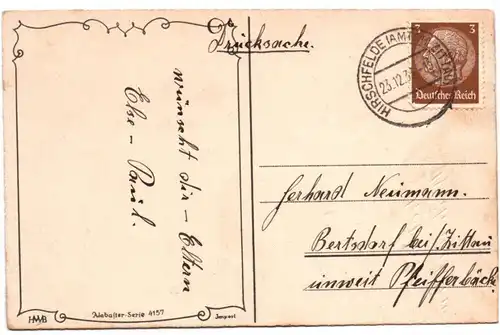 Drucksache.
wünscht dir - Eltern
Else - Paul.
HIRSCHFELDE (AMTSH. ZITTAU)
23.12.3
3 3
Deutsches Reich
Gerhard Neumann.
Bertsdorf bei/Zittau
unweit Pfeifferbäck
HWB
Alabaster-Serie 4157
Import